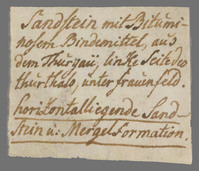 Sandstein mit Bitumi-
nosem Bindemittel, aus
dem Thurgau, linke Seite des
thurthals, unter frauenfeld.
horizontalliegende Sand-
stein u: Mergel Formation.